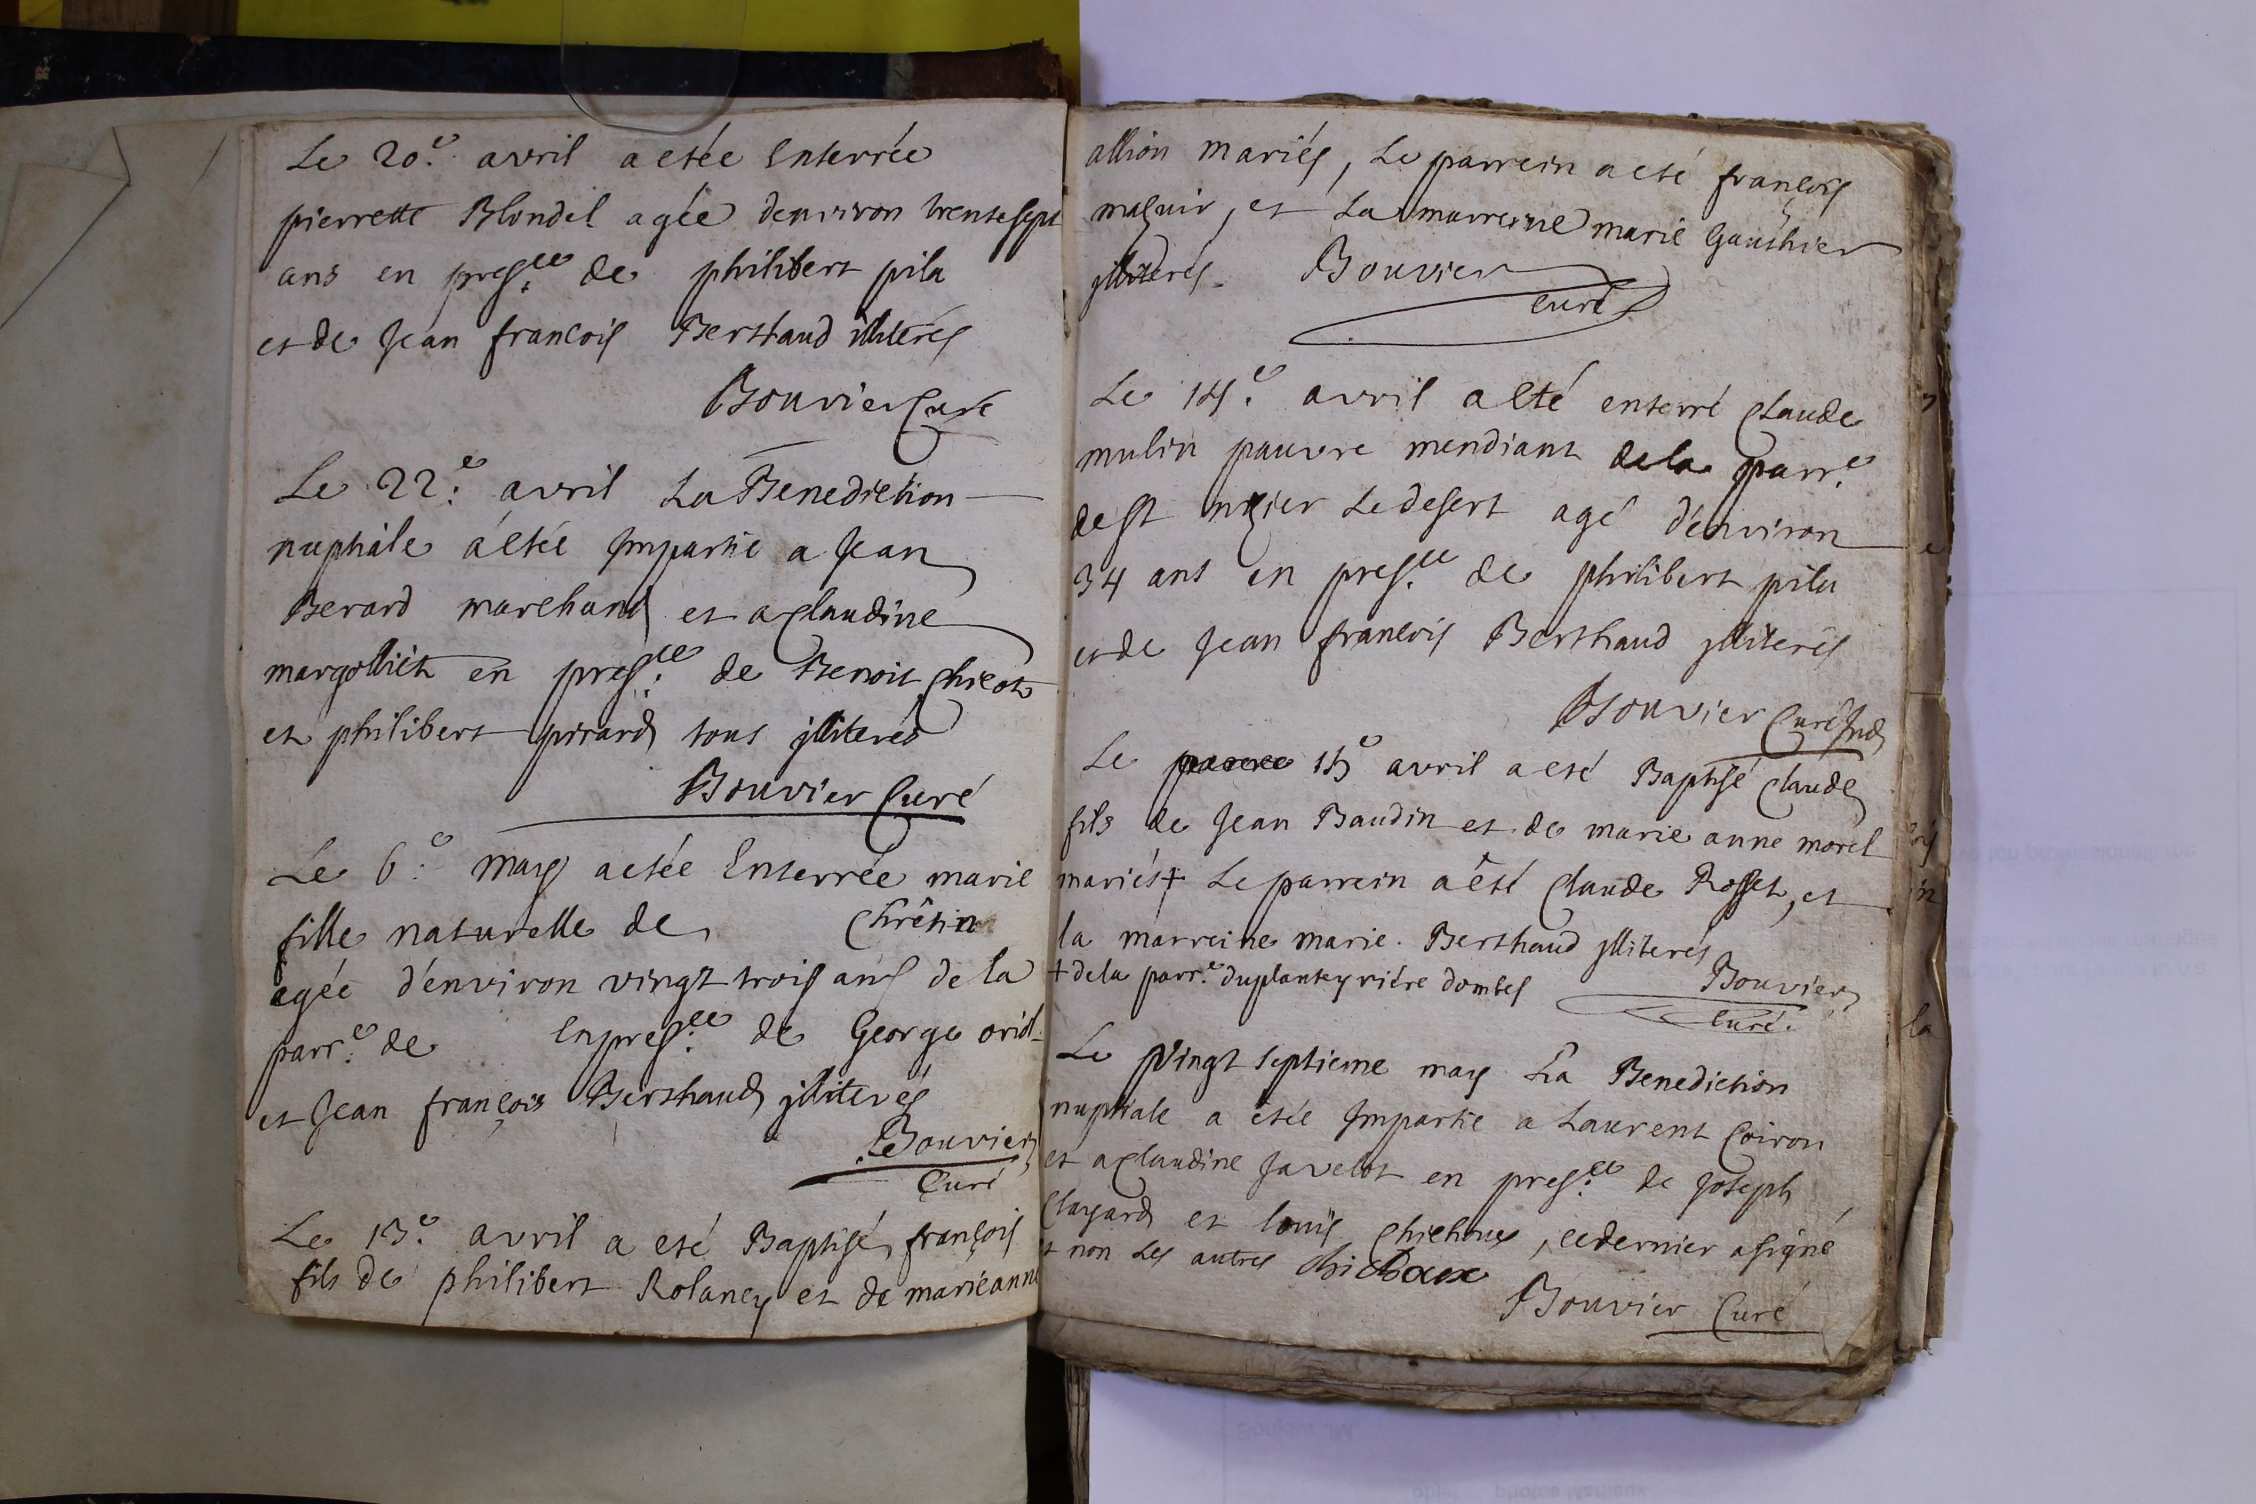 Le 20.e avril a etée Enterrée
pierrette Blondel agée denviron trentesept
ans en presce. de philibert pila
et de Jean francois Berthaud illiterés
Bouvier Curé
Le 22.e avril La Benediction
nuptiale a étée Impartie a Jean
Berard marchand et a Claudine
margolliet en presce. de Benoit Chicot
et philibert pirard tous jlliterés
Bouvier Curé
Le 6.e may a etée Enterrée marie
fille naturelle de Chrêtin
agée d'environ vingt trois ans de la
parr.e de En presce. de George oriol
et Jean françois Berthaud jlliterés
Bouvier
Curé
Le 13.e avril a eté Baptisé françois
fils de philibert Rolancy et de marie anne
allion mariés, Le parrein a eté françois
et La marreine marie Gauthier
jlliterés. Bouvier
curé
Le 14.e avril a eté enterré Claude
mulin pauvre mendiant de la parr.e
de St nizier Le desert agé d'environ
34 ans en presce. de philibert pila
et de Jean francois Berthaud jlliterés
Bouvier Curé
Le 15e avril a eté Baptisé Claude
fils de Jean Baudin et de marie anne morel
mariés+ Le parrein a êté Claude Rosset, et
la marreine marie Berthaud jlliterés
+ de la parr.e du plantey riére dombes Bouvier
Curé.
Le Vingt septieme may La Benediction
nuptiale a êtée Impartie a Laurent Coiron
et a Claudine Javelot en presce. de Joseph
Clayard et louis Chichoux, ce dernier a signé
et non Les autres chichoux
Bouvier Curé